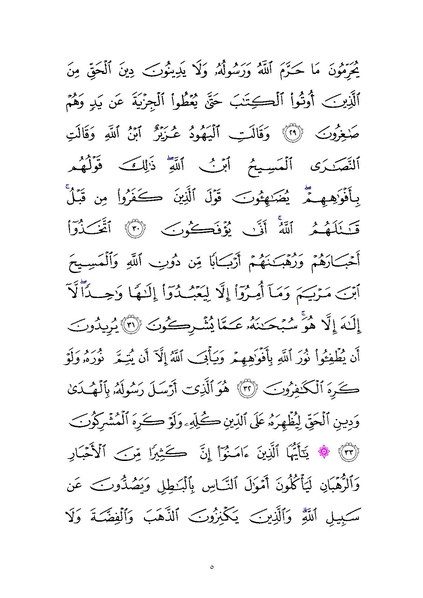 يُحَرِّمُونَ مَا حَرَّمَ ٱللَّهُ وَرَسُولُهُۥ وَلَا يَدِينُونَ دِينَ ٱلْحَقِّ مِنَ
ٱلَّذِينَ أُوتُوا۟ ٱلْكِتَٰبَ حَتَّىٰ يُعْطُوا۟ ٱلْجِزْيَةَ عَن يَدٍ وَهُمْ
صَٰغِرُونَ ٢٩ وَقَالَتِ ٱلْيَهُودُ عُزَيْرٌ ٱبْنُ ٱللَّهِ وَقَالَتِ
ٱلنَّصَٰرَى ٱلْمَسِيحُ ٱبْنُ ٱللَّهِ ۖ ذَٰلِكَ قَوْلُهُم
بِأَفْوَٰهِهِمْ ۖ يُضَٰهِـُٔونَ قَوْلَ ٱلَّذِينَ كَفَرُوا۟ مِن قَبْلُ ۚ
قَٰتَلَهُمُ ٱللَّهُ ۚ أَنَّىٰ يُؤْفَكُونَ ٣٠ ٱتَّخَذُوٓا۟
أَحْبَارَهُمْ وَرُهْبَٰنَهُمْ أَرْبَابًا مِّن دُونِ ٱللَّهِ وَٱلْمَسِيحَ
ٱبْنَ مَرْيَمَ وَمَآ أُمِرُوٓا۟ إِلَّا لِيَعْبُدُوٓا۟ إِلَٰهًا وَٰحِدًا ۖ لَّآ
إِلَٰهَ إِلَّا هُوَ ۚ سُبْحَٰنَهُۥ عَمَّا يُشْرِكُونَ ٣١ يُرِيدُونَ
أَن يُطْفِـُٔوا۟ نُورَ ٱللَّهِ بِأَفْوَٰهِهِمْ وَيَأْبَى ٱللَّهُ إِلَّآ أَن يُتِمَّ نُورَهُۥ وَلَوْ
كَرِهَ ٱلْكَٰفِرُونَ ٣٢ هُوَ ٱلَّذِىٓ أَرْسَلَ رَسُولَهُۥ بِٱلْهُدَىٰ
وَدِينِ ٱلْحَقِّ لِيُظْهِرَهُۥ عَلَى ٱلدِّينِ كُلِّهِۦ وَلَوْ كَرِهَ ٱلْمُشْرِكُونَ
٣٣ ۞ يَٰٓأَيُّهَا ٱلَّذِينَ ءَامَنُوٓا۟ إِنَّ كَثِيرًا مِّنَ ٱلْأَحْبَارِ
وَٱلرُّهْبَانِ لَيَأْكُلُونَ أَمْوَٰلَ ٱلنَّاسِ بِٱلْبَٰطِلِ وَيَصُدُّونَ عَن
سَبِيلِ ٱللَّهِ ۗ وَٱلَّذِينَ يَكْنِزُونَ ٱلذَّهَبَ وَٱلْفِضَّةَ وَلَا
٥